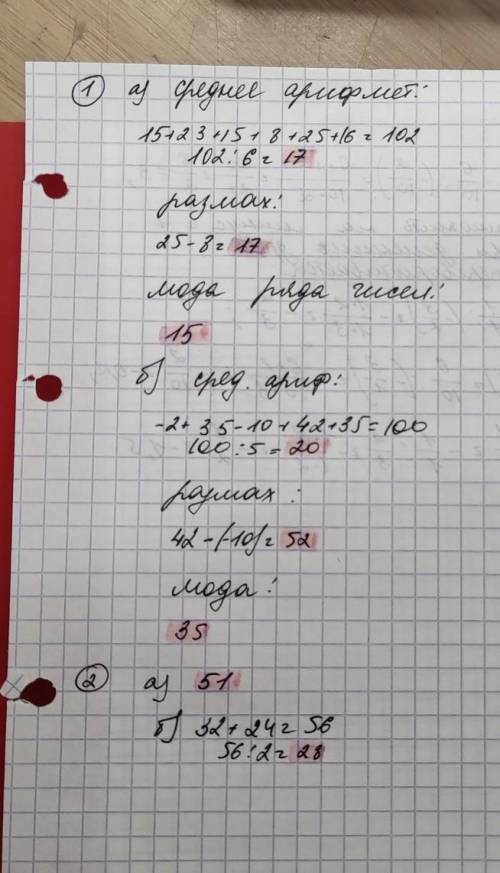 1 а) среднее арифмет:
15+23+15+8+25+16=102
102:6=17
размах:
25-8=17
мода ряда чисел:
15
б) сред. ариф:
-2+35-10+42+35=100
100:5=20
размах:
42-(-10)=52
мода:
35
2 а) 51
б) 32+24=56
56:2=28